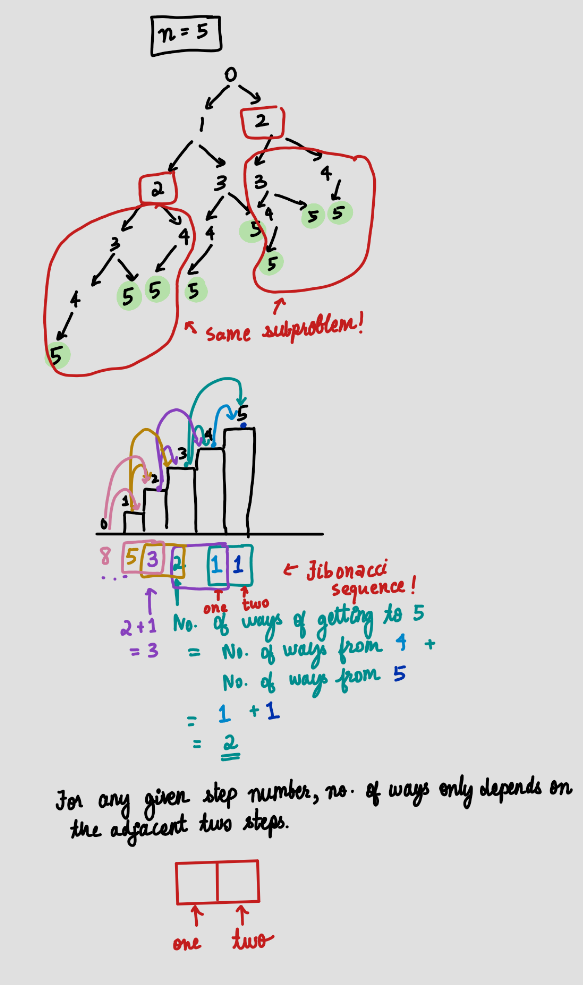 n = 5
0
1 2
2 3 3 4
3 4 4 5 4 5 5
4 5 5 5 5
5
same subproblem!
5
4
3
2
1
0
8 5 3 2 1 1
... one two
Fibonacci
sequence!
2+1
= 3
No. of ways of getting to 5
= No. of ways from 4 +
No. of ways from 5
= 1 + 1
= 2
For any given step number, no. of ways only depends on
the adjacent two steps.
one two